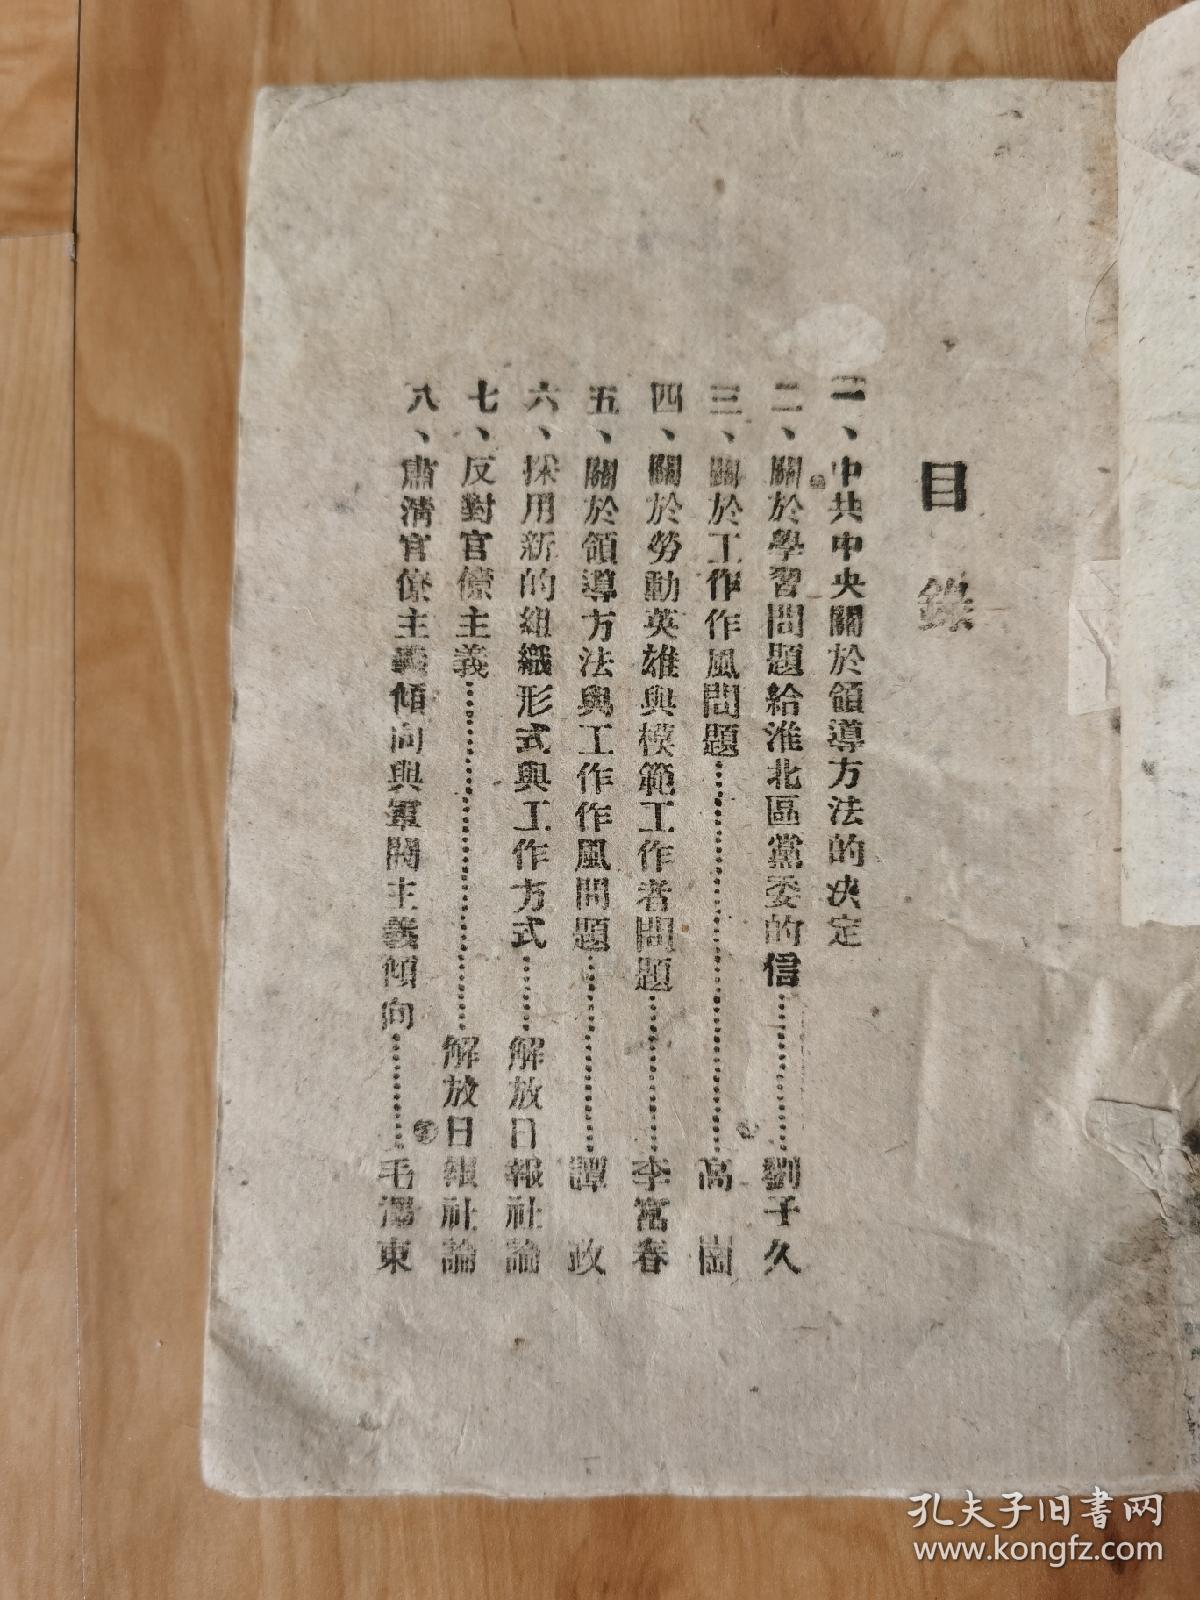 目錄
一、中共中央關於領導方法的決定
二、關於學習問題給淮北區黨委的信…………劉子久
三、關於工作作風問題…………高樹
四、關於勞動英雄與模範工作者問題…………李富春
五、關於領導方法與工作作風問題…………譚政
六、採用新的組織形式與工作方式……解放日報社論
七、反對官僚主義…………解放日報社論
八、肅清官僚主義傾向與軍閥主義傾向…………毛澤東
孔夫子旧书网
www.kongfz.com